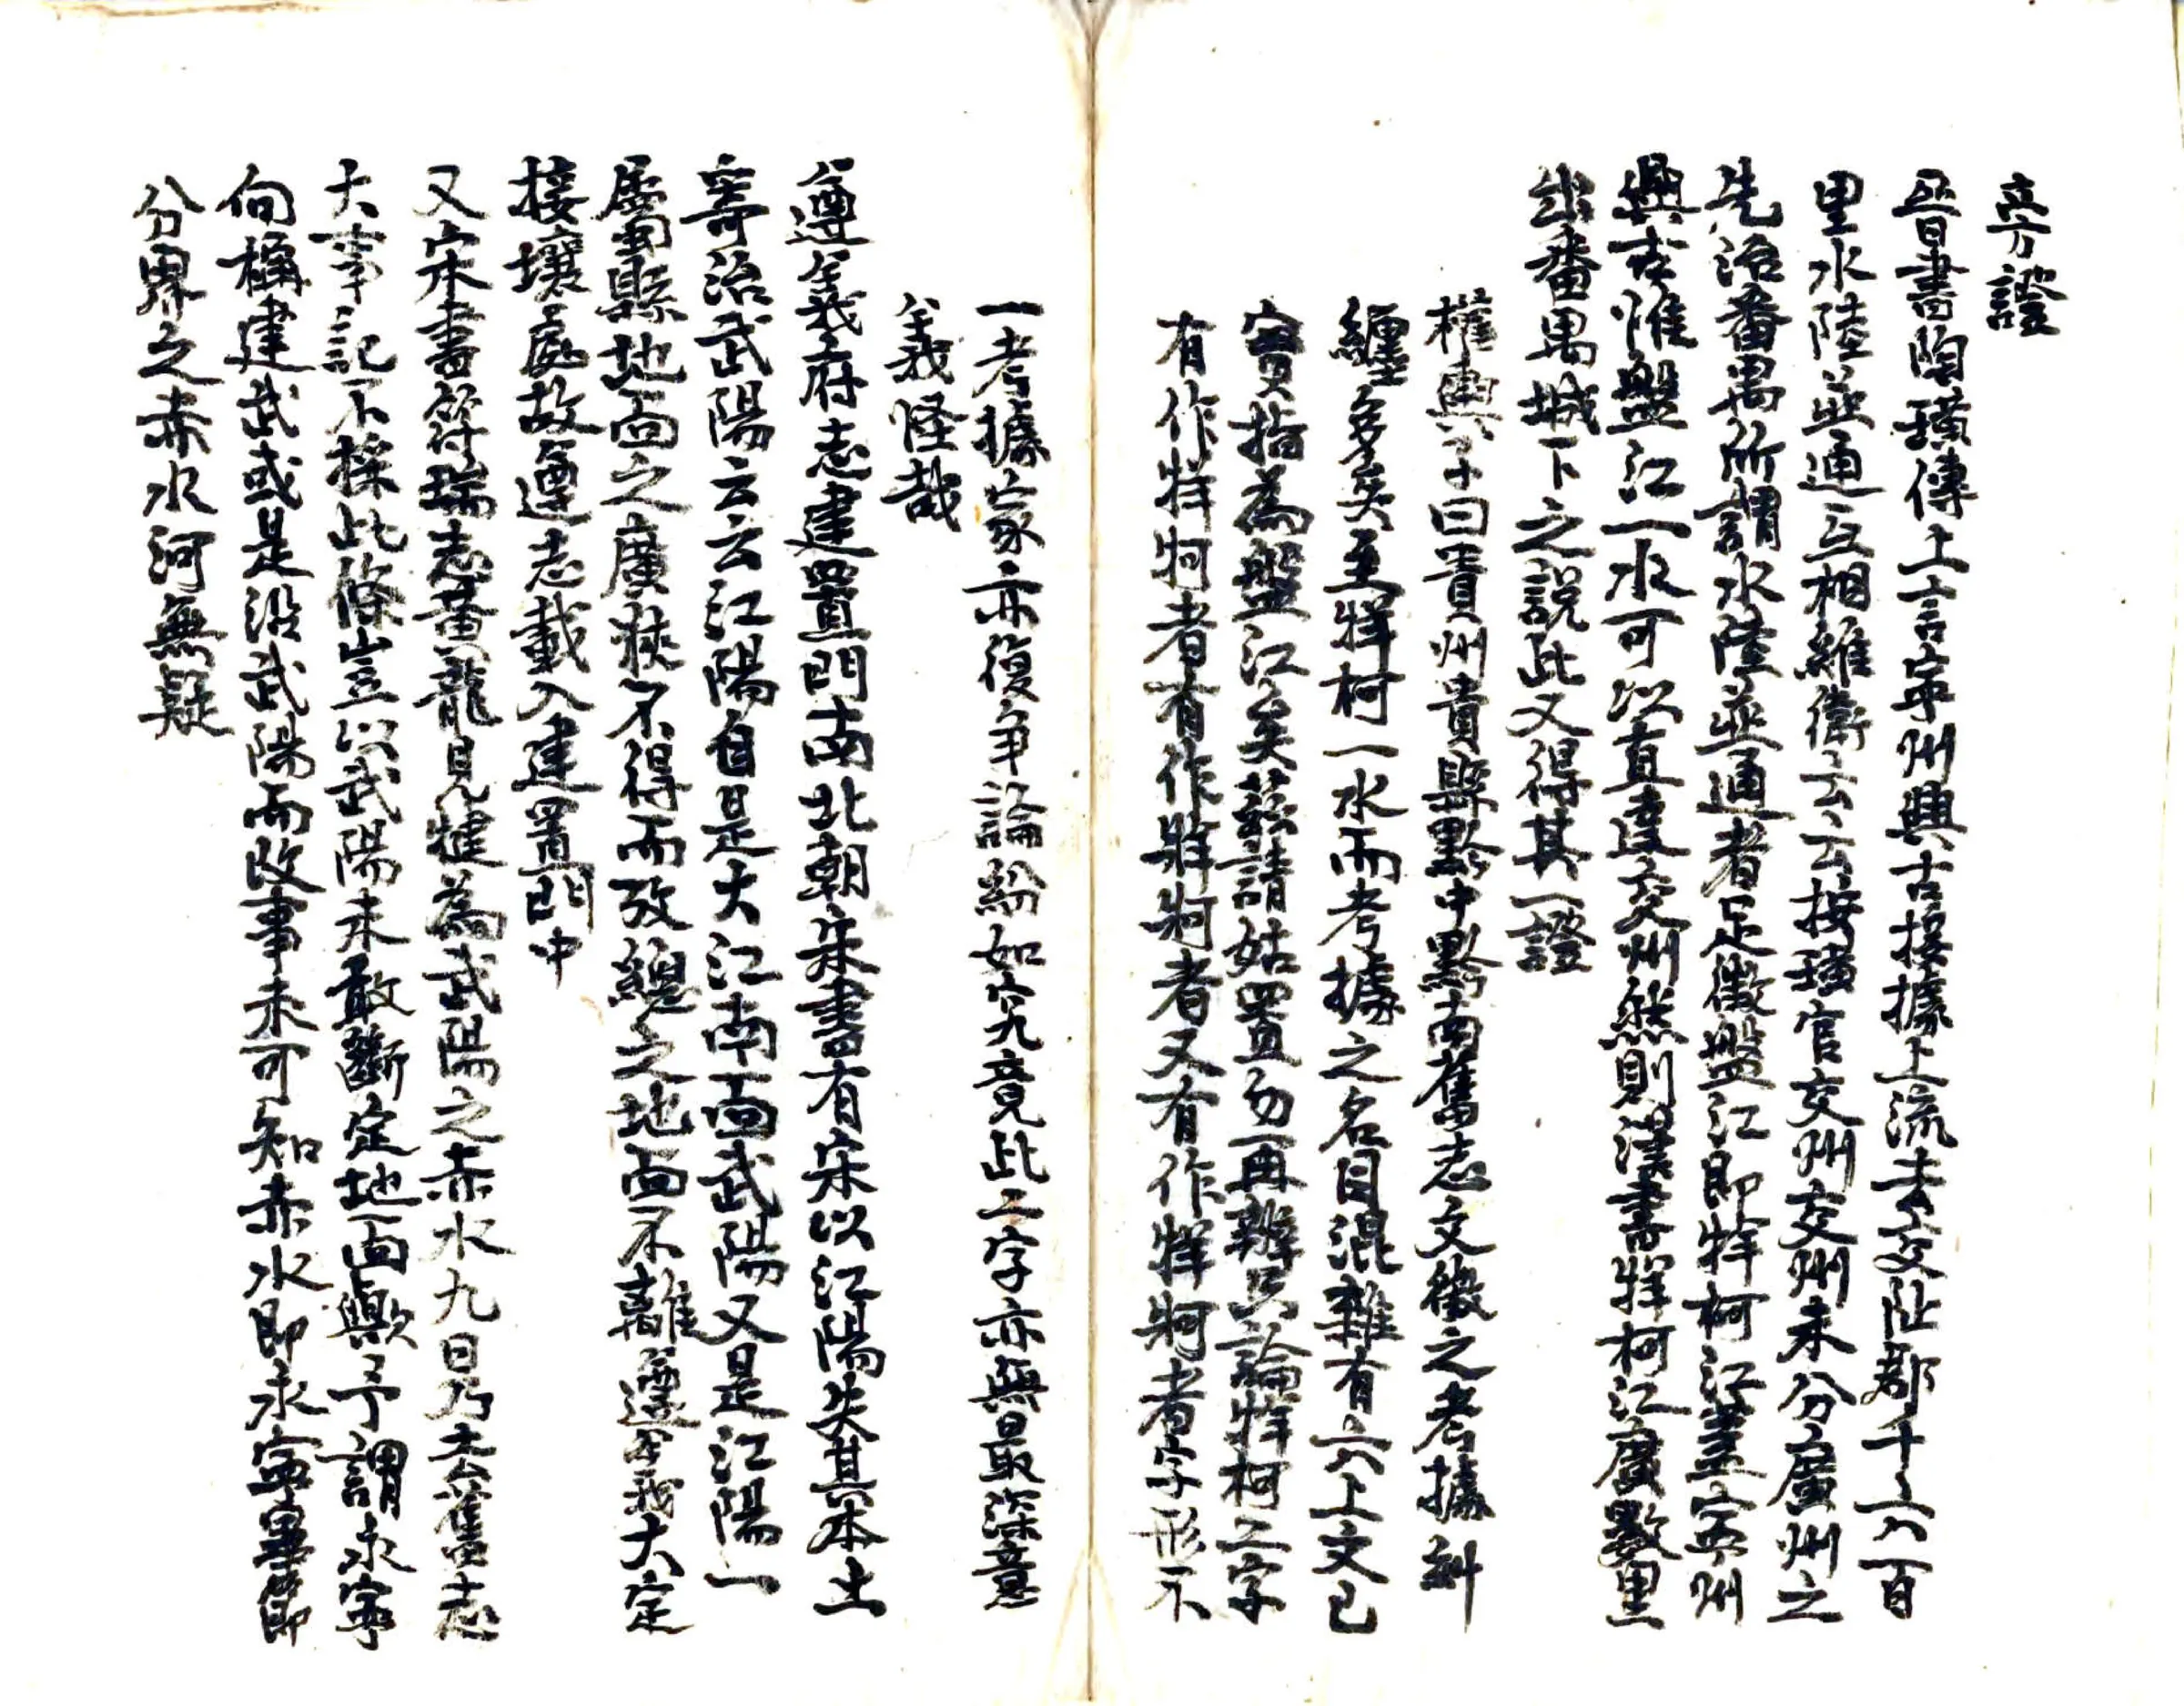 旁證
晉書陶璜傳上言寧州興古接據上流去交阯郡千六百
里水陸並通互相維衛云云按璜官交州交州未分廣州之
先治番禺所謂水陸並通者足徵盤江即牂柯江蓋寧州
興古惟盤江一水可以直達交州然則漢書牂柯江廣數里
出番禺城下之說此又得其一證
權輿子曰貴州貴縣黔中黔南舊志文徵之考據糾
纏多矣至牂柯一水而考據之名目混雜有六上文已
實指為盤江矣茲請姑置勿再辨只論牂柯二字
有作牂牁者有作牂牁者又有作牂牁者字形不
一考據家亦復爭論紛如究竟此二字亦無最深意
義怪哉
遵義府志建置門南北朝宋書有宋以江陽失其本土
寄治武陽云云江陽自是大江南面武陽又是江陽一
屬縣地面之廣狹不得而攷總之地面不離遵義大定
接壤處故遵志載入建置門中
又宋書符瑞志黃龍見犍為武陽之赤水九日乃去舊志
大事記不採此條豈以武陽未敢斷定地面歟予謂永寧
向稱建武或是沿武陽而改事未可知赤水即永寧畢節
分界之赤水河無疑